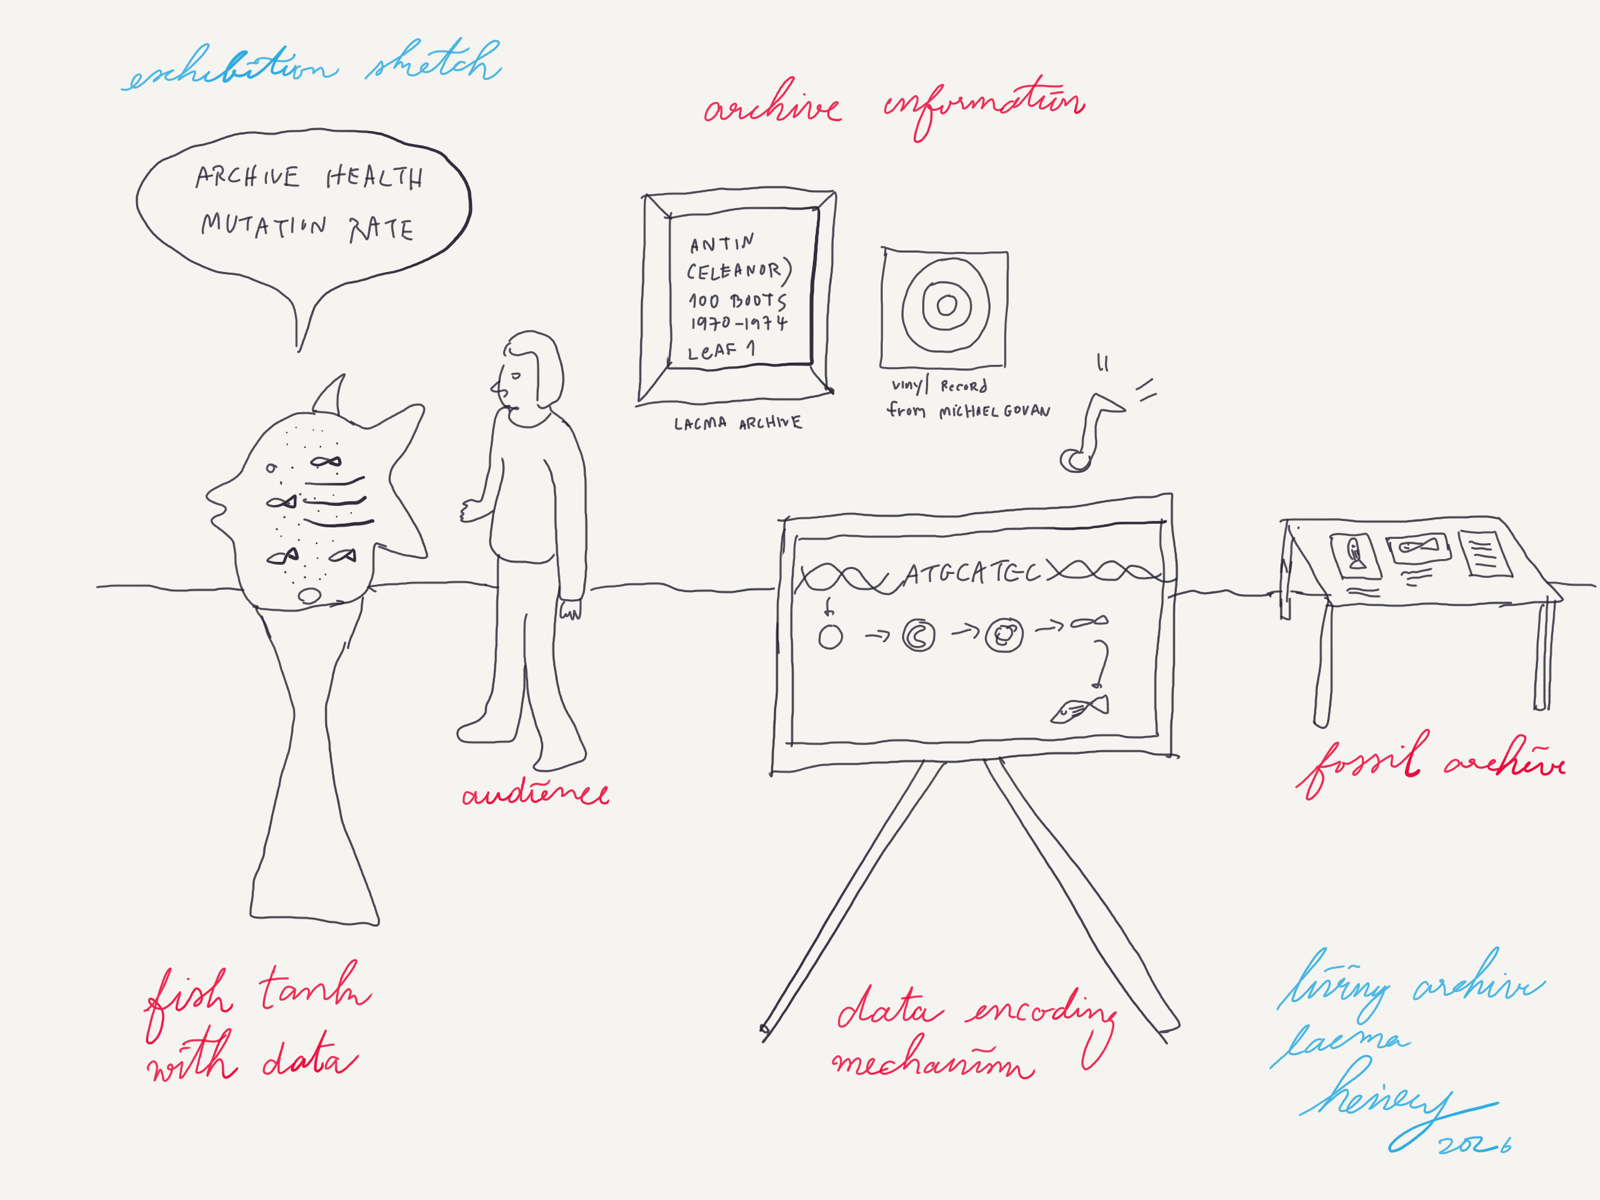 exhibition sketch
archive information
ARCHIVE HEALTH
MUTATION RATE
ANTIN
(ELEANOR)
100 BOOTS
1970-1974
LEAF 1
LACMA ARCHIVE
vinyl RECORD
from MICHAEL GOVAN
ATGCATGC
audience
fossil archive
fish tank
with data
data encoding
mechanism
living archive
lacma
2026